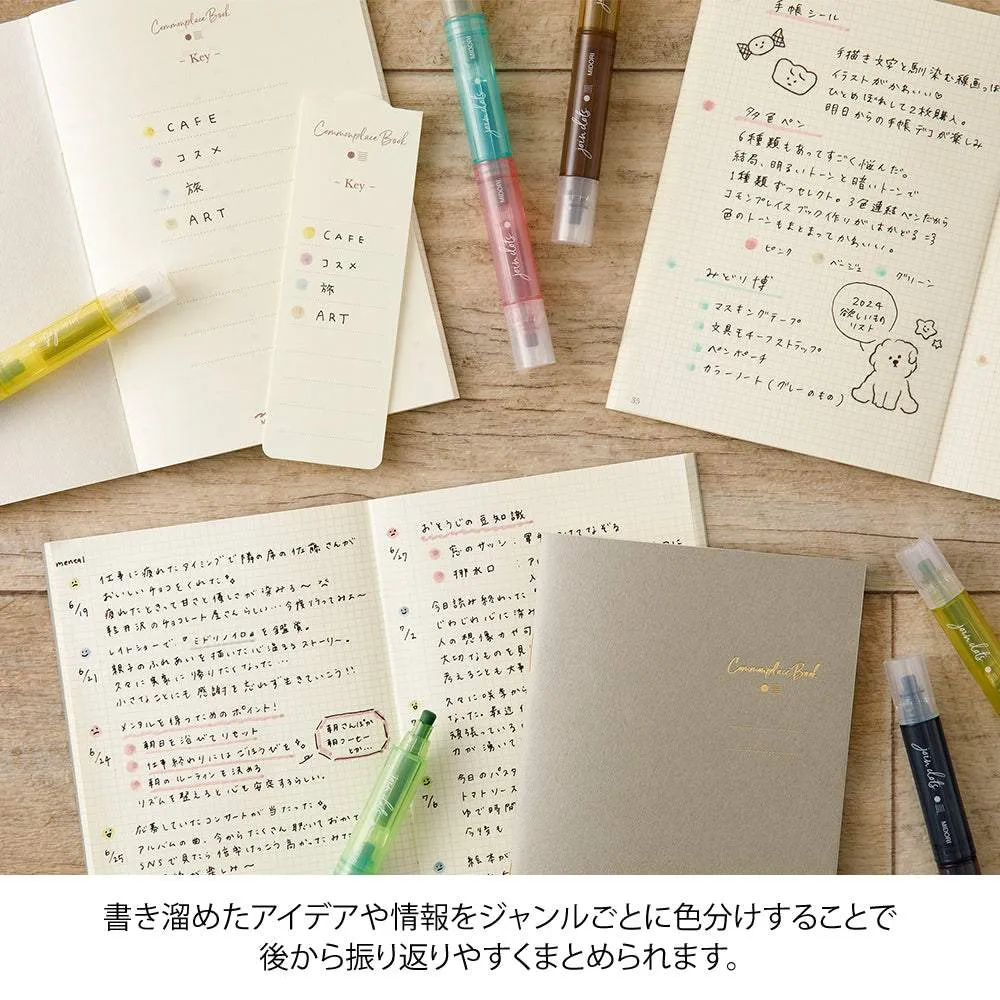 Commonplace Book
- Key -
CAFE
コスメ
旅
ART
Commonplace Book
- Key -
CAFE
コスメ
旅
ART
join dots
MIDORI
join dots
MIDORI
join dots
MIDORI
手帳シール
手描き文字と馴染む線画っぽ
イラストがかわいい♡
ひとめぼれして2枚購入。
明日からの手帳デコが楽しみ
多色ペン
6種類もあってすごく悩んだ。
結局、明るいトーンと暗いトーンで
1種類ずつセレクト。3色連結ペンだから
コモンプレイスブック作りがはかどる =3
色のトーンもまとまってかわいい。
ピンク ベージュ グリーン
みどり博
マスキングテープ
文具モチーフストラップ
ペンポーチ
カラーノート(グレーのもの)
2024
欲しいもの
リスト
35
mental
6/19
仕事に疲れたタイミングで隣の席の佐藤さんが
おいしいチョコをくれた
疲れたときって甘さと優しさが染みる〜
軽井沢のチョコレート屋さんらしい…今度行ってみよ〜
6/21
レイトショーで『ミドリノイロ』を鑑賞。
親子のふれあいを描いた心温まるストーリー。
久々に実家に帰りたくなった…
小さなことにも感謝を忘れず生きていこう!!
6/24
メンタルを保つためのポイント!
朝日を浴びてリセット
仕事終わりにはごほうびを
朝のルーティンを決める
リズムを整えると心も安定するらしい。
朝さんぽか
朝コーヒー
とか…
6/25
応募していたコンサートが当たった
アルバムの曲、今からたくさん聴いておかて
SNSで見たら倍率けっこう高かったみた
楽しみ〜
6/27
おとうじの豆知識
窓のサッシ:
排水口:
7/2
今日読み終わった
じわじわ心に染み
人の想像力や可
大切なものを見
考えることも大事
久々に咲季から
なった。最近
頑張っている
力が湧いて
7/6
今日のパスタ
トマトソース
ゆで時間
今特も
絵本が
Commonplace Book
join dots
join dots
MIDORI
書き溜めたアイデアや情報をジャンルごとに色分けすることで
後から振り返りやすくまとめられます。